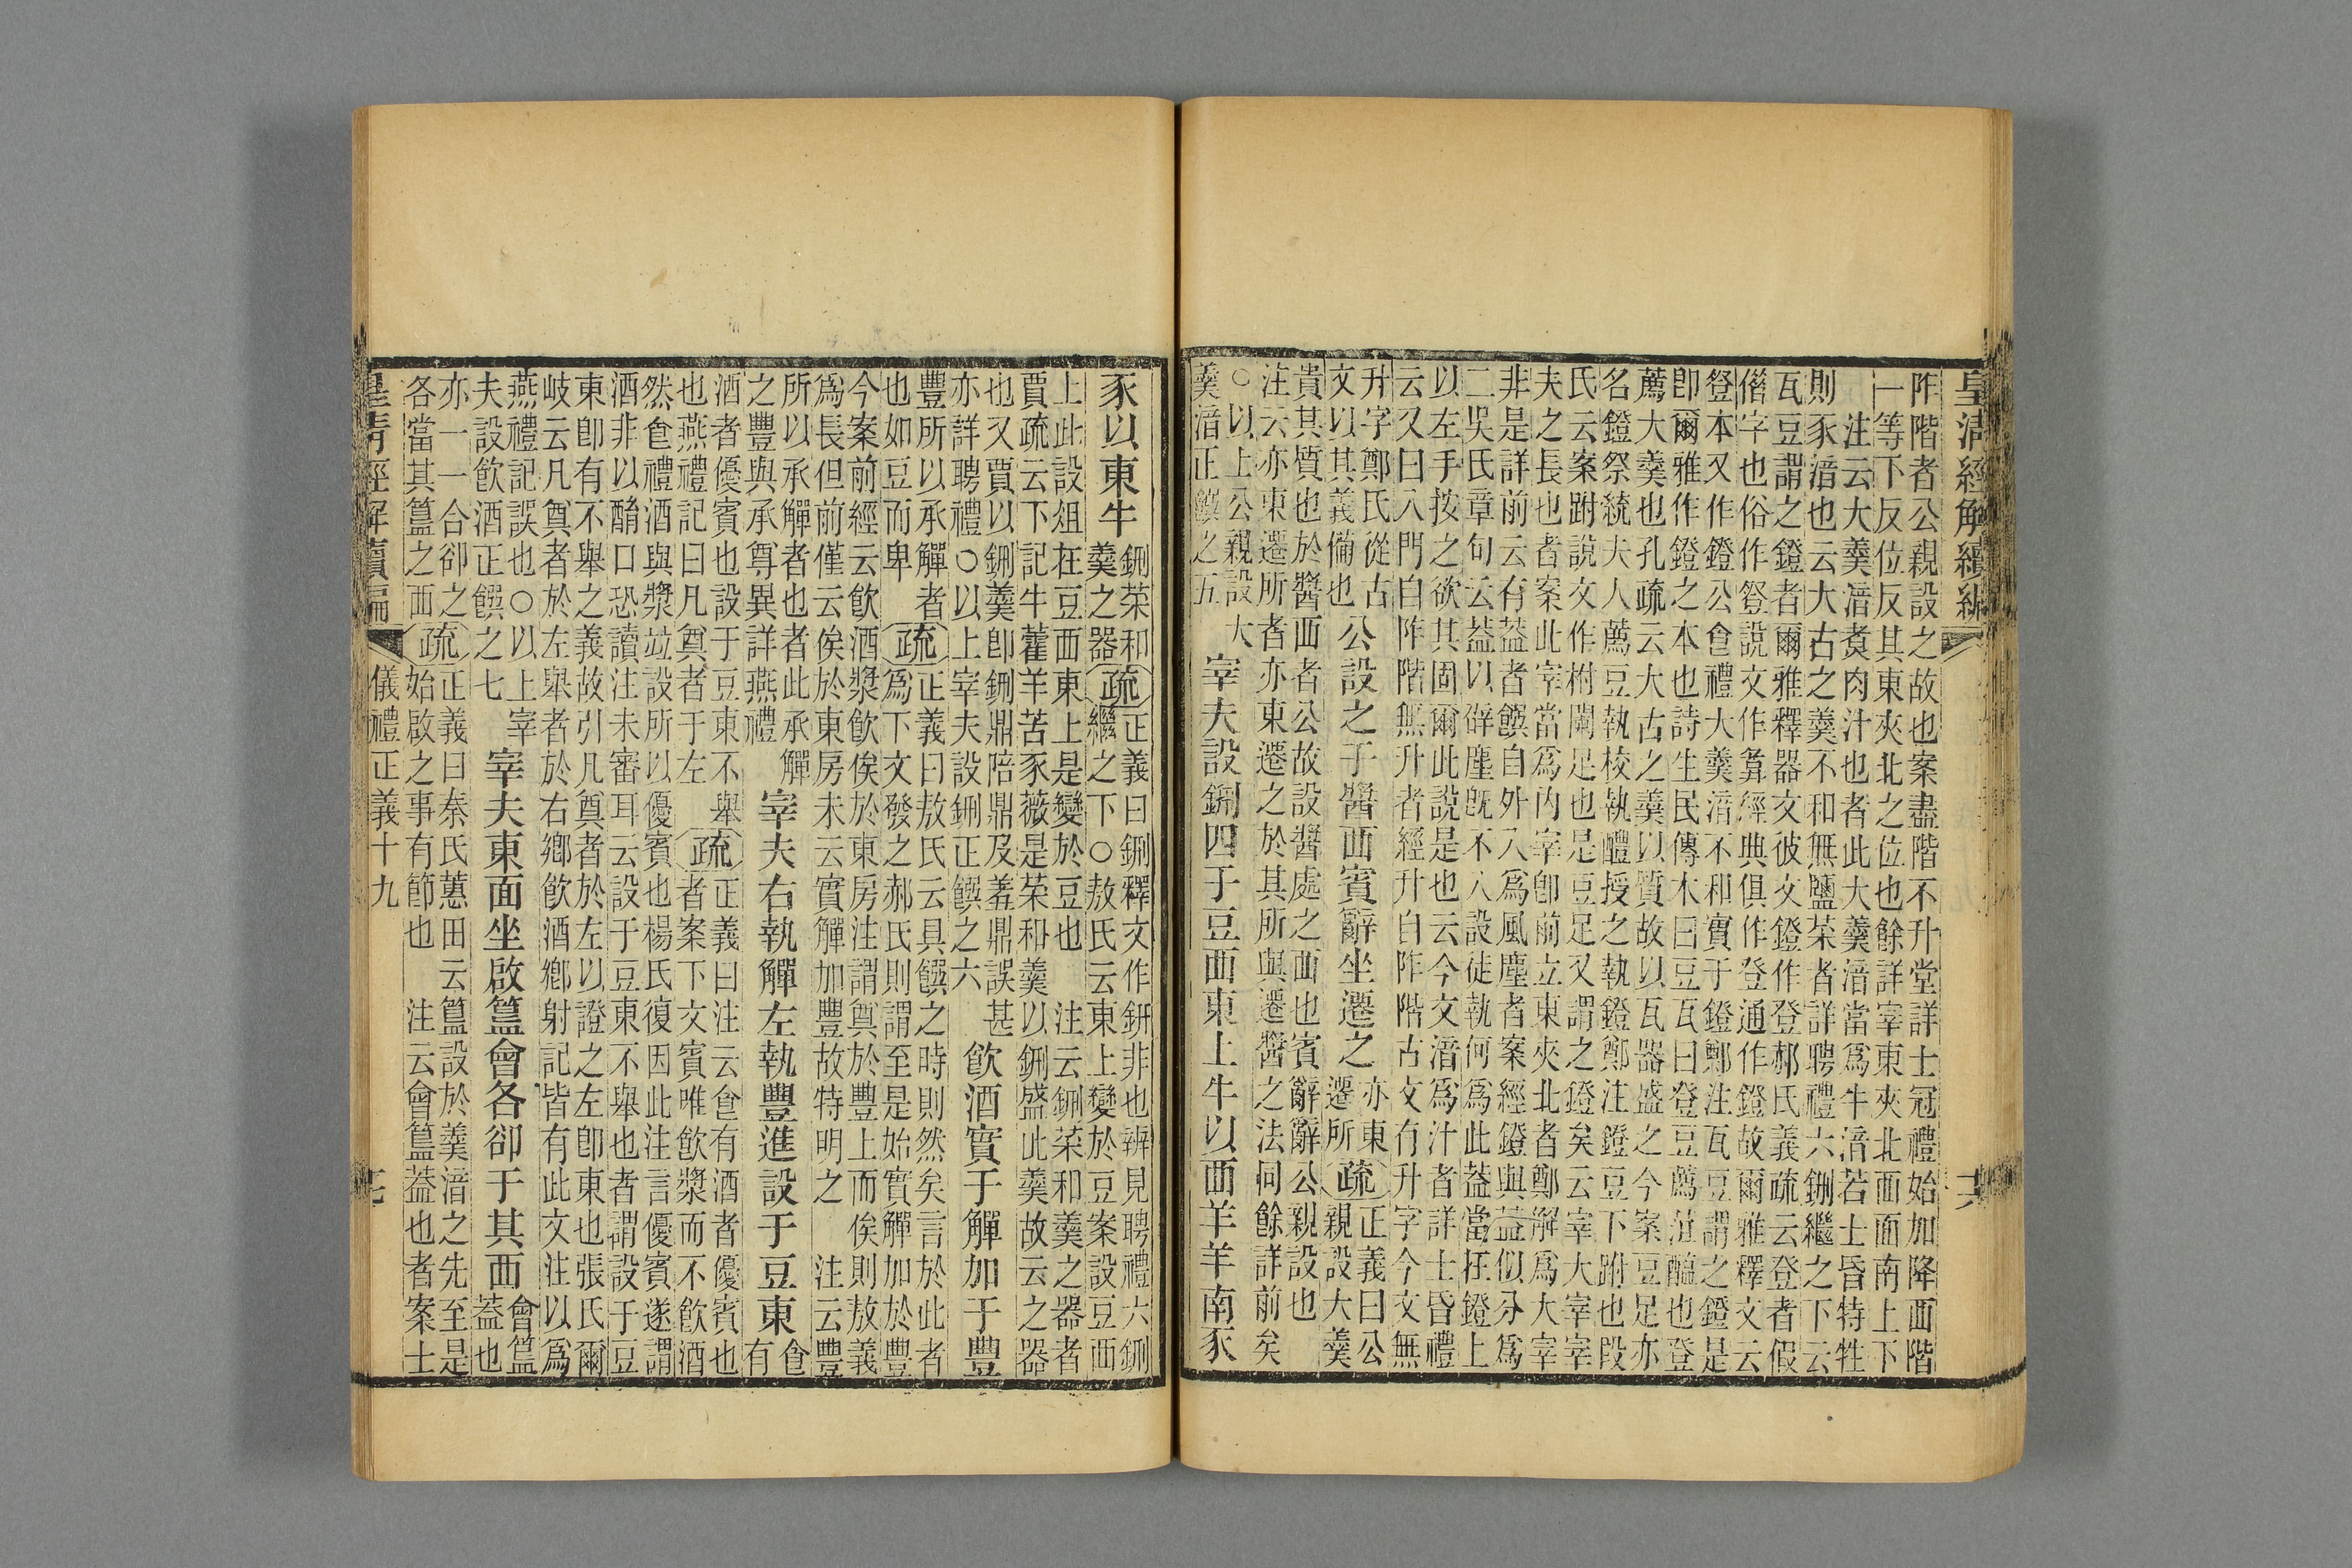 皇清經解續編
阼階者公親設之故也案盡階不升堂詳士冠禮始加降西階
一等下反位反其東夾北之位也餘詳宰東夾北面西南上下
注云大羹湆煑肉汁也者此大羹湆當爲牛湆若士昏特牲
則豕湆也云大古之羹不和無鹽菜者詳聘禮六鉶繼之下云
瓦豆謂之鐙者爾雅釋器文彼文鐙作登郝氏義疏云登者假
偺字也俗作豋說文作䇺經典俱作登通作鐙故爾雅釋文云
豋本又作鐙公食禮大羹湆不和實于鐙鄭注瓦豆謂之鐙是
卽爾雅作鐙之本也詩生民傳木曰豆瓦曰登豆薦菹醢也登
薦大羹也孔疏云大古之羹以質故以瓦器盛之今案豆足亦
名鐙祭統夫人薦豆執校執醴授之執鐙鄭注鐙豆下跗也段
氏云案跗說文作柎闌足也是豆足又謂之鐙矣云宰大宰宰
夫之長也者案此宰當爲內宰卽前立東夾北者鄭解爲大宰
非是詳前云有蓋者饌自外入爲風塵者案經鐙與蓋似分爲
二吳氏章句云蓋以辟塵旣不入設徒執何爲此蓋當在鐙上
以左手按之欲其固爾此說是也云今文湆爲汁者詳士昏禮
云又曰入門自阼階無升者經升自阼階古文有升字今文無
升字鄭氏從古
文以其義備也
公設之于醬西賓辭坐遷之
亦東
遷所
疏
正義曰公
親設大羹
貴其質也於醬西者公故設醬處之西也賓辭辭公親設也
注云亦東遷所者亦東遷之於其所與遷醬之法同餘詳前矣
○以上公親設大
羹湆正饌之五
宰夫設鉶四于豆西東上牛以西羊羊南豕
豕以東牛
鉶菜和
羹之器
疏
正義曰鉶釋文作鈃非也辨見聘禮六鉶
繼之下○敖氏云東上變於豆案設豆西
上此設俎在豆西東上是變於豆也　注云鉶菜和羹之器者
賈疏云下記牛藿羊苦豕薇是菜和羹以鉶盛此羹故云之器
也又賈以鉶羹卽鉶鼎陪鼎及羞鼎誤甚
亦詳聘禮○以上宰夫設鉶正饌之六
飮酒實于觶加于豐
豐所以承觶者
也如豆而卑
疏
正義曰敖氏云具饌之時則然矣言於此者
爲下文發之郝氏則謂至是始實觶加於豐
今案前經云飮酒漿飮俟於東房注謂奠於豐上而俟則敖義
爲長但前僅云俟於東房未云實觶加豐故特明之　注云豐
所以承觶者也者此承觶
之豐與承尊異詳燕禮
宰夫右執觶左執豐進設于豆東
食
有
酒者優賓也設于豆東不舉
也燕禮記曰凡奠者于左
疏
正義曰注云食有酒者優賓也
者案下文賓唯飮漿而不飮酒
然食禮酒與漿竝設所以優賓也楊氏復因此注言優賓遂謂
酒非以酳口恐讀注未審耳云設于豆東不舉也者謂設于豆
東卽有不舉之義故引凡奠者於左以證之左卽東也張氏爾
岐云凡奠者於左舉者於右鄉飮酒鄉射記皆有此文注以爲
燕禮記誤也○以上宰
夫設飮酒正饌之七
宰夫東面坐啟簋會各卻于其西
會簋
蓋也
亦一一合卻之
各當其簋之西
疏
正義曰秦氏蕙田云簋設於羹湆之先至是
始啟之事有節也　注云會簋蓋也者案士
皇清經解續編
儀禮正義十九